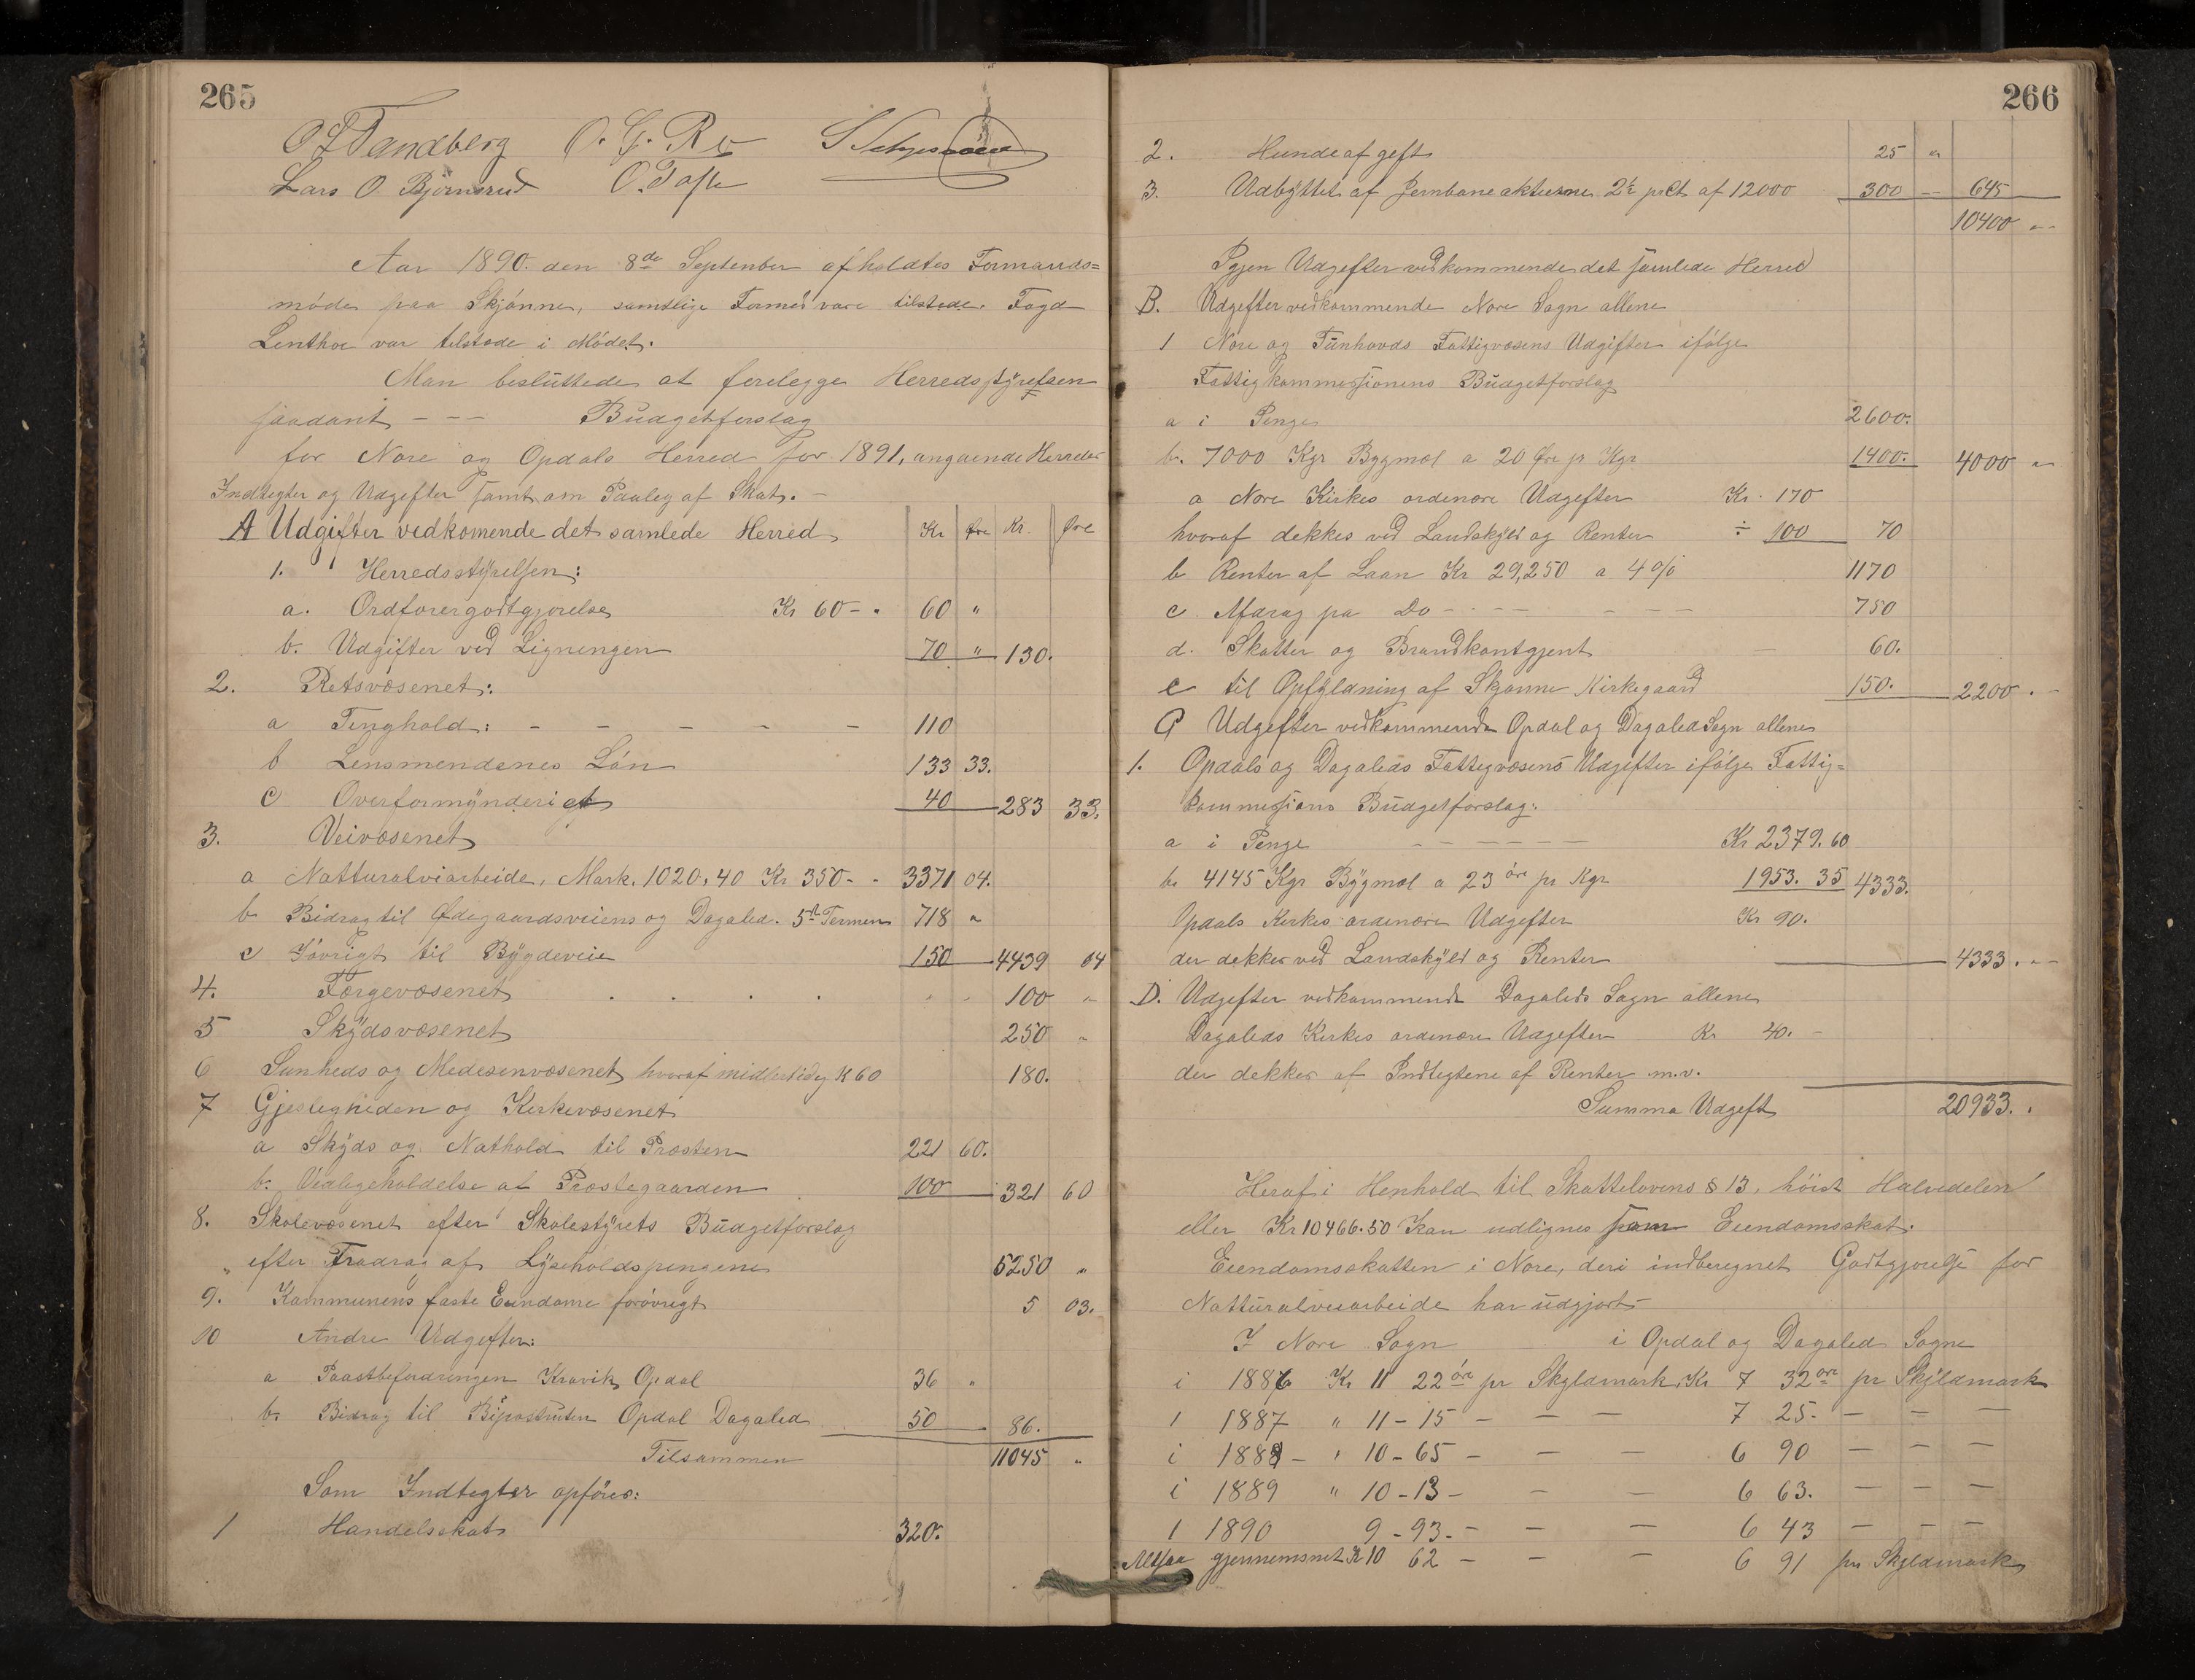 265
O. T. Tandberg O. G. Ro
Lars O. Bjørnsrud O. Tofte
Aar 1890. den 8de September afholdtes Formands=
møde paa Skjønne, samtlige Formæd vare tilstede. Fogd
Lenthe var tilstede i Mødet.
Man besluttede at forelegge Herredsstyrelsen
saadant - - - Budgetforslag
for Nore og Opdals Herred for 1891, angaaende Herredets
Indtegter og Udgefter samt om Paaleg af Skat. -
A Udgifter vedkomende det samlede Herred Kr Øre Kr. Øre
1. Herredsstyrelsen:
a. Ordførergodtgjørelse Kr 60 - " 60 "
b. Udgifter ved Ligningen 70 " 130.
2. Retsvæsenet:
a Tinghold: - - - - - 110
b Lensmendenes Løn 133 33.
c Overformynderiet 40 283 33.
3. Veivæsenet
a Natturalviarbeide, Mark. 1020,40 Kr 350 - - 3371 04.
b Bidrag til Ødegaardsveiens og Dagalid. 5te Termen 718 "
c Iøvrigt til Bygdeveie 150 4439 04
4. Færgevæsenet . . . . . . 100 "
5 Skydsvæsenet 250 "
6 Sunheds og Medesenvæsenet hvoraf midlertidig K 60 180.
7 Gjesteligheden og Kirkevæsenet
a Skyds og Nathold til Præsten 221 60.
b. Vedligeholdelse af Præstegaarden 100 321 60
8. Skolevæsenet efter Skolestyrets Budgetforslag
" efter Fradrag af Lyseholdspengene 5250 "
9. Kommunens faste Eiendome forøvrigt 5 03.
10 Andre Udgefter:
a Paastbefordringen Kravik Opdal 36 "
b. Bidrag til Bipostruten Opdal Dagalid 50 86.
Tilsammen 11045 "
Som Indtegter opføres:
1 Handelsskat 320.
266
2. Hundeafgeft 25 "
3. Udbyttet af Jernbaneaktierne 2½ prCt af 12000 300 - 645
10400 "
Igjen Udgefter vedkommende det samlede Herred
B. Udgefter vedkommende Nore Sogn allene
1 Nore og Tunhovds Fattigvæsens Udgifter ifølge
Fattigkommessionens Budgetforslag
a i Penge 2600.
b. 7000 Kgr Bygmel a 20 Øre pr Kgr 1400. 4000 "
a Nore Kirkes ordenære Udgefter Kr. 170
hvoraf dekkes ved Landskyld og Renter ÷ 100 70
b Renter af Laan Kr 29,250 a 4 % 1170
c Afdrag pa Do - - - - - - - 750
d. Skatter og Brandkontgjent — 60.
e til Opfyldning af Skjønne Kirkegaard 150. 2200 . -
C Udgefter vedkommende Opdal og Dagalid Sogn allene
1. Opdals og Dagalids Fattegvæsens Udgefter ifølge Fattig=
kommessions Budgetforslag.
a i Penge - - - - - Kr 2379.60
b. 4145 Kgr Bygmel a 23 øre pr Kgr 1953. 35 4333.
Opdals Kirkes ordenære Udgefter Kr 90.
der dekkes ved Landskyld og Renter 4333. " -
D. Udgefter vedkommende Dagalids Sogn allene
Dagalids Kirkes ordenære Udgefter Kr 40. -
der dekkes af Indtegtene af Renter m.v.
Summa Udgeft 20933. .
Heraf i Henhold til Skattelovens § 13, høist Halvdelen
eller Kr 10466.50 kan udlignes som Eiendomsskat.
Eiendomsskatten i Nore, deri indberegnet Godtgjørelse for
Natturalveiarbeide har udgjort -
I Nore Sogn i Opdal og Dagalid Sogne
i 1886 Kr 11 22 øre pr Skyldmark, Kr 7 32 øre pr Skyldmark
i 1887 " 11 - 15 - — — 7 25. — — —
i 1888 - " 10 - 65 - — — 6 90 — — —
i 1889 " 10 - 13 - — — 6 63. — — —
i 1890 9 - 93. - — — 6 43 — — —
Altsaa gjennemsnet Kr 10 62 - — — 6 91 pr Skyldmark